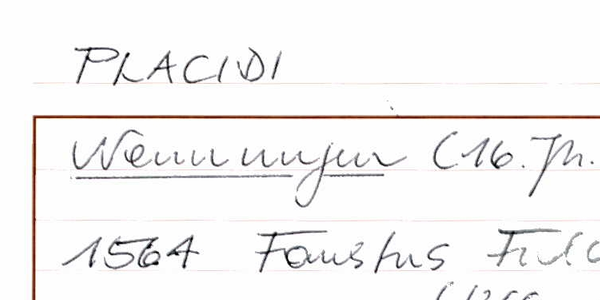 PLACIDI
Wemmingen (16. Jh.
1564 Faustus